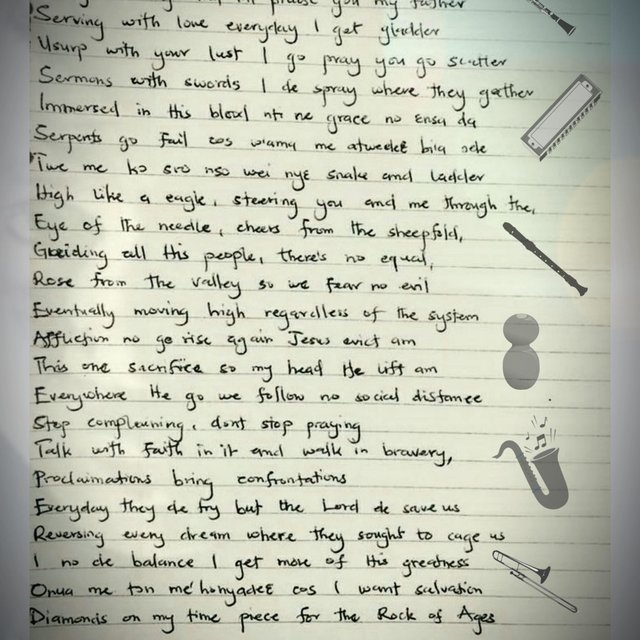 praise you my father
Serving with love everyday I get gladder
Usurp with your lust I go pray you go scatter
Sermons with swords I de spray where they gather
Immersed in this blood nti ne grace no ensa da
Serpents go fail cos wamy me atweedeɛ bia ode
Twe me kɔ soro nso wei nyɛ snake and ladder
High like a eagle, steering you and me through the,
Eye of the needle, cheers from the sheepfold,
Guiding all His people, there's no equal,
Rose from the valley so we fear no evil
Eventually moving high regardless of the system
Affliction no go rise again Jesus evict am
This one sacrifice so my head He lift am
Everywhere He go we follow no social distance
Stop complaining, dont stop praying
Talk with faith in it and walk in bravery,
Proclaimations bring confrontations
Everyday they de try but the Lord de save us
Reversing every dream where they sought to cage us
I no de balance I get more of His greatness
Onua me tɔn me'honyadeɛ cos I want salvation
Diamonds on my time piece for the Rock of Ages